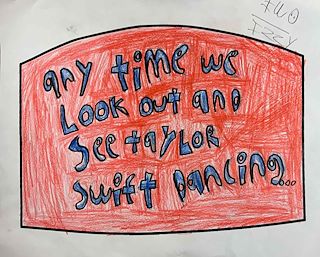 Izzy
any time we
Look out and
See taylor
swift Dancing...